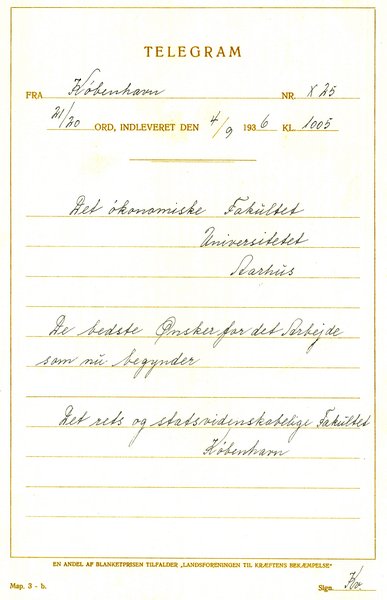 TELEGRAM
FRA København NR. X 25
21/20 ORD, INDLEVERET DEN 4/9 1936 KL. 1005
Det økonomiske Fakultet
Universitetet
Aarhus
De bedste Ønsker for det Arbejde
som nu begynder
Det rets og statsvidenskabelige Fakultet
København
EN ANDEL AF BLANKETPRISEN TILFALDER „LANDSFORENINGEN TIL KRÆFTENS BEKÆMPELSE"
Map. 3 - b. Sign. Kv.